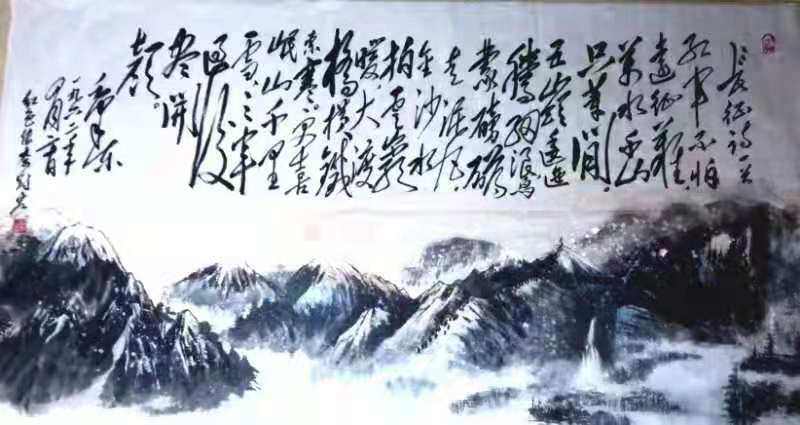 长征诗一首
红军不怕
远征难
万水千山
只等闲
五岭逶迤
腾细浪乌
蒙磅礴
走泥丸
金沙水
拍云崖
暖大渡
桥横铁
索寒更喜
岷山千里
雪三军
过后
尽开
颜
毛泽东
一九六二年
四月二十日